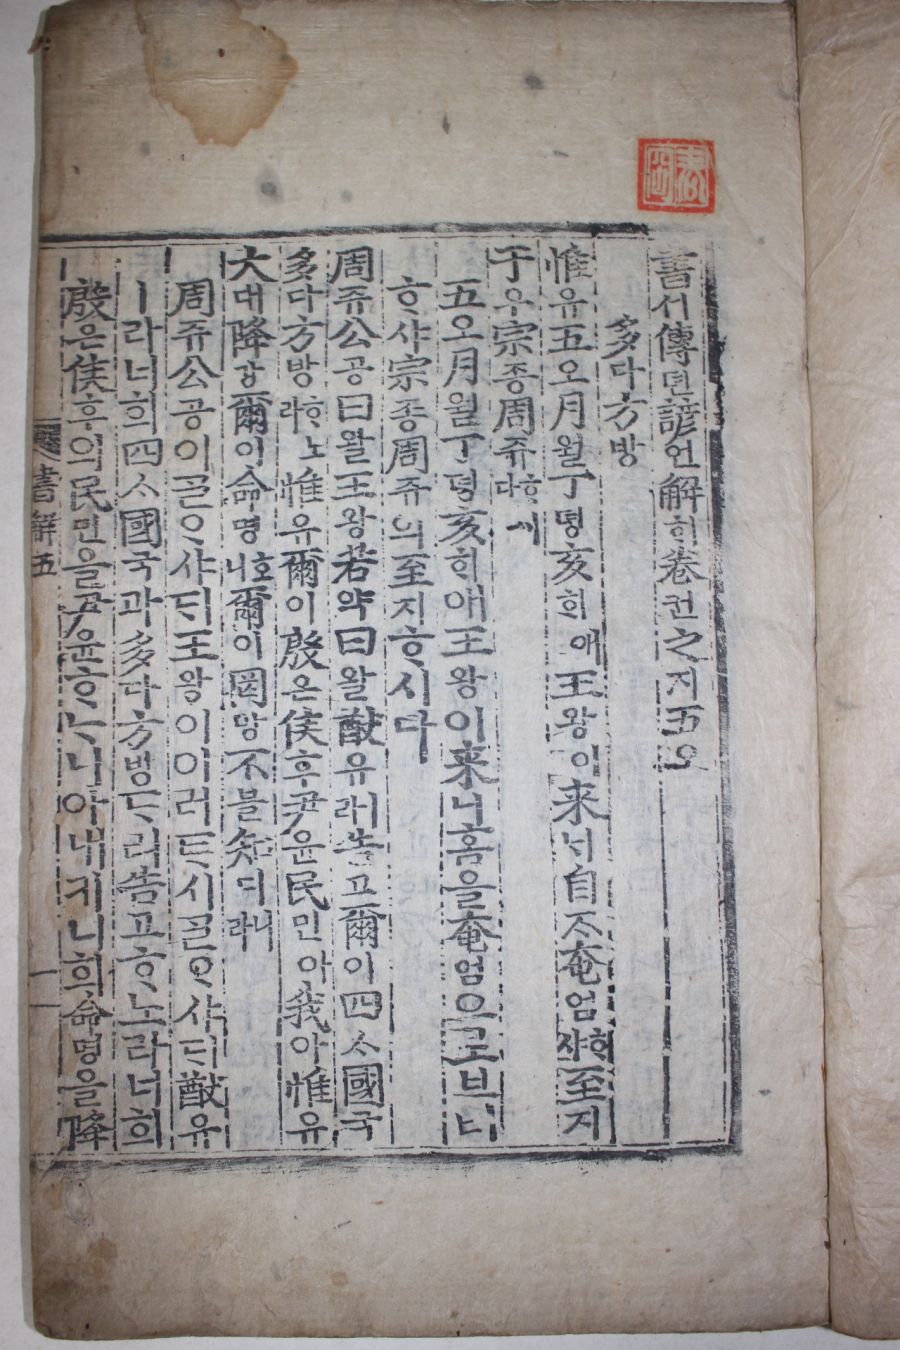 書셔傳뎐諺언解ᄒᆡ卷권之지五오
多다方방
惟유五오月월丁뎡亥ᄒᆡ애王왕이来ᄅᆡ自ᄌᆞ奄엄ᄒᆞ샤至지
于우宗종周쥬ᄒᆞ다
五오月월丁뎡亥ᄒᆡ애王왕이来ᄅᆡ홈을奄엄으로브터
ᄒᆞ샤宗종周쥬의至지ᄒᆞ시다
周쥬公공曰왈王왕若약曰왈猷유라告고爾이四ᄉᆞ國국
多다方방ᄒᆞ노라惟유爾이殷은侯후尹윤民민아我아惟유
大대降강爾이命명호니爾이罔망不블知디니라
周쥬公공이ᄀᆞᆯᄋᆞ샤ᄃᆡ王왕이이러ᄐᆞ시ᄀᆞᆯᄋᆞ샤ᄃᆡ猷유
ㅣ라너희四ᄉᆞ國국과多다方방ᄃᆞ려告고ᄒᆞ노라너희
殷은侯후의民민을尹윤ᄒᆞᄂᆞ니아내게너희命명을降
書解五
一